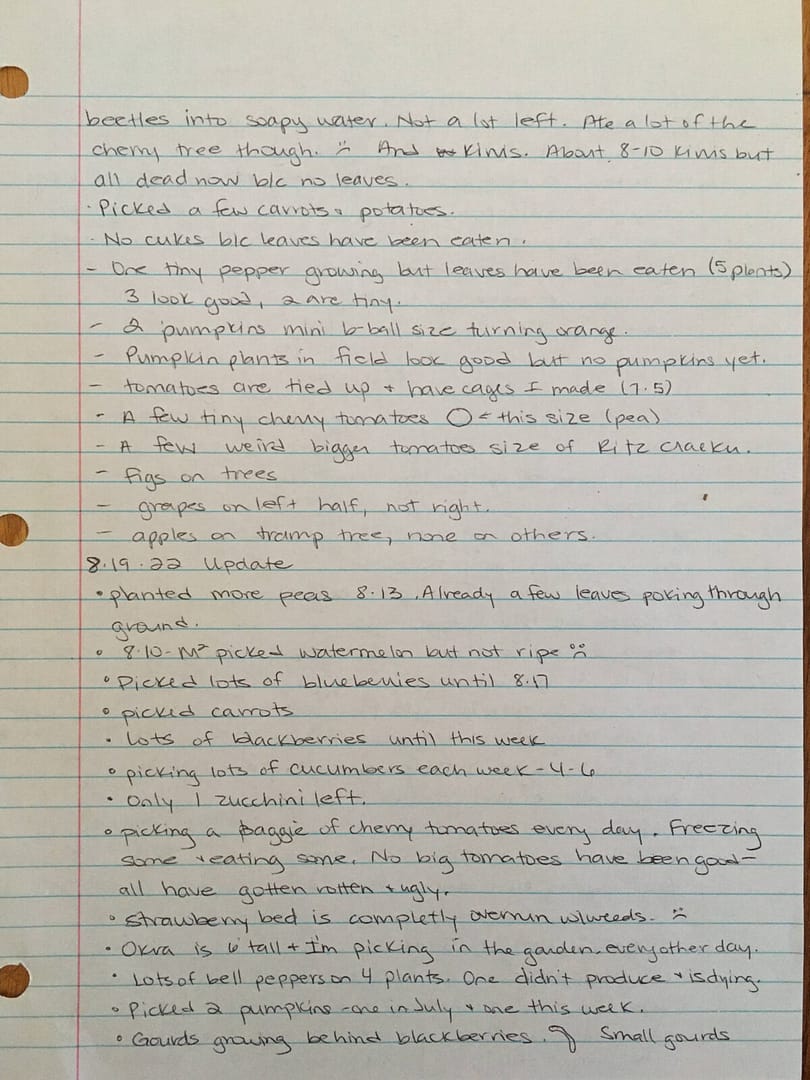 beetles into soapy water. Not a lot left. Ate a lot of the
cherry tree though. :( And kiwis. About 8-10 kiwis but
all dead now b/c no leaves.
· Picked a few carrots & potatoes.
· No cukes b/c leaves have been eaten.
- One tiny pepper growing but leaves have been eaten (5 plants)
3 look good, 2 are tiny.
- 2 pumpkins mini b-ball size turning orange.
- Pumpkin plants in field look good but no pumpkins yet.
- tomatoes are tied up + have cages I made (7.5)
- A few tiny cherry tomatoes O < this size (pea)
- A few weird bigger tomatoes size of Ritz cracker.
- figs on trees
- grapes on left half, not right.
- apples on tramp tree, none on others.
8.19.22 Update
• planted more peas 8.13. Already a few leaves poking through
ground.
• 8.10-M² picked watermelon but not ripe :(
• Picked lots of blueberries until 8.17
• picked carrots
• Lots of blackberries until this week
• picking lots of cucumbers each week-4-6
• Only 1 zucchini left.
• picking a baggie of cherry tomatoes every day. Freezing
some + eating some. No big tomatoes have been good-
all have gotten rotten + ugly.
• Strawberry bed is completly overrun w/weeds. :(
• Okra is 6' tall + I'm picking in the garden every other day.
• Lots of bell peppers on 4 plants. One didn't produce + is dying.
• Picked 2 pumpkins -one in July + one this week.
• Gourds growing behind blackberries. Small gourds